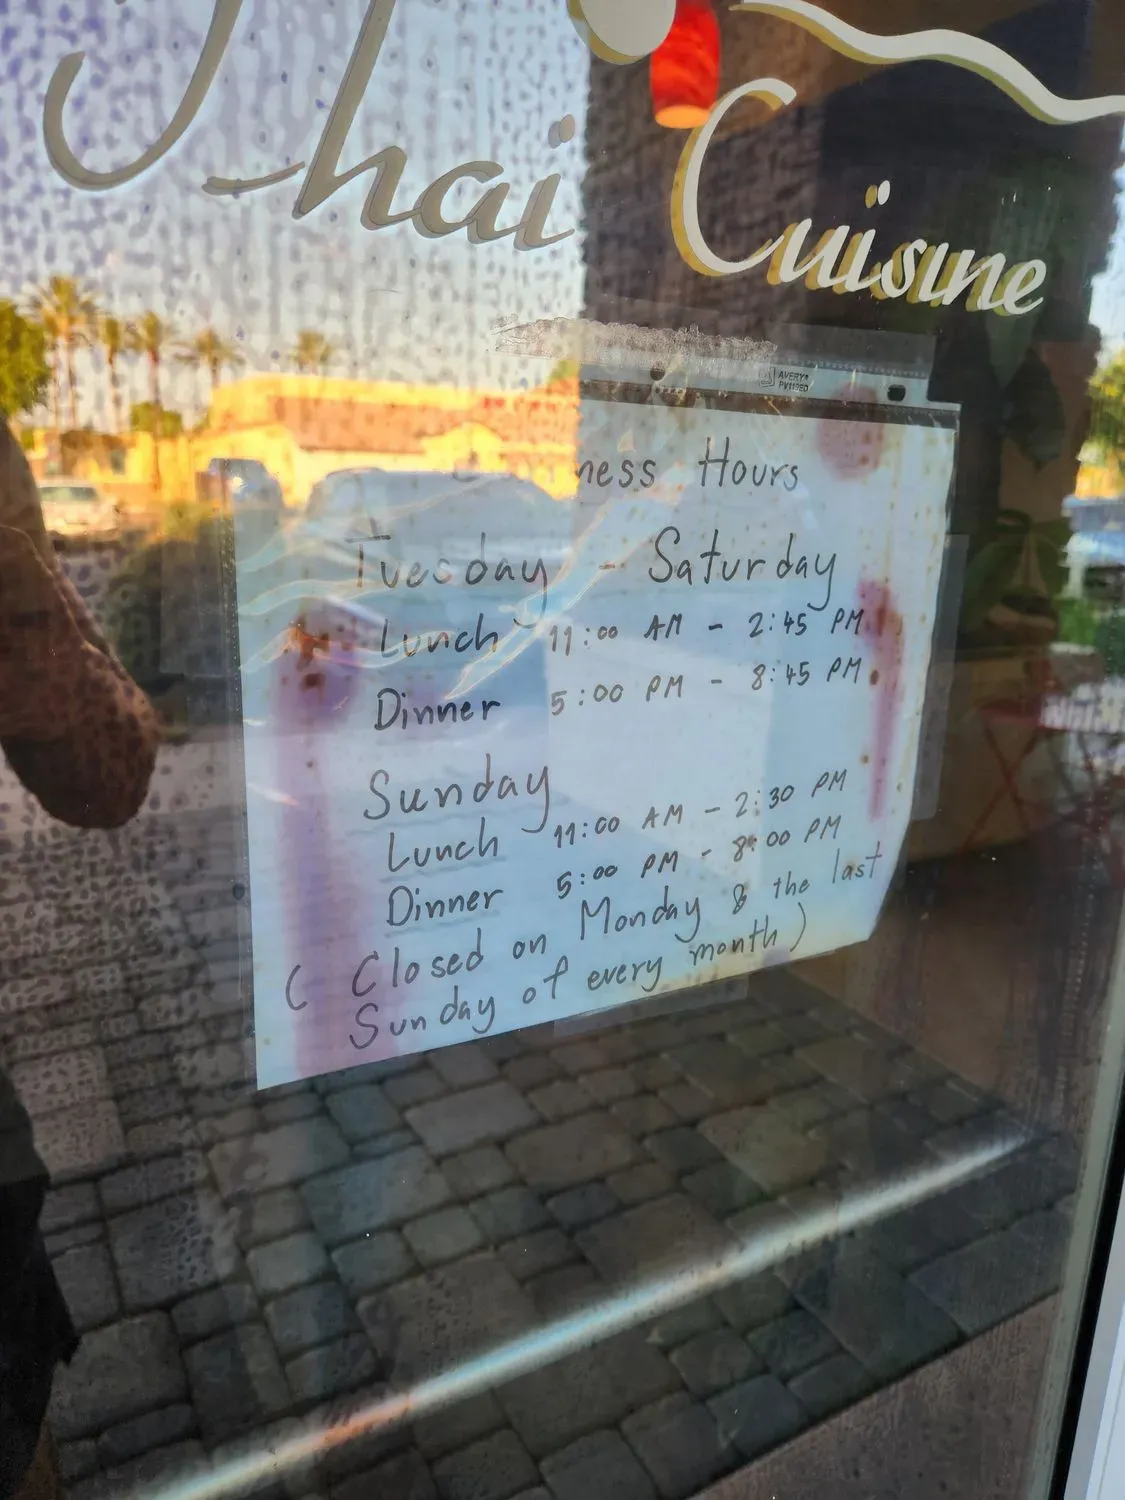 Thai Cuisine
AVERY®
PV119ED
ness Hours
Tuesday - Saturday
Lunch 11:00 AM - 2:45 PM
Dinner 5:00 PM - 8:45 PM
Sunday
Lunch 11:00 AM - 2:30 PM
Dinner 5:00 PM - 8:00 PM
( Closed on Monday & the last
Sunday of every month)